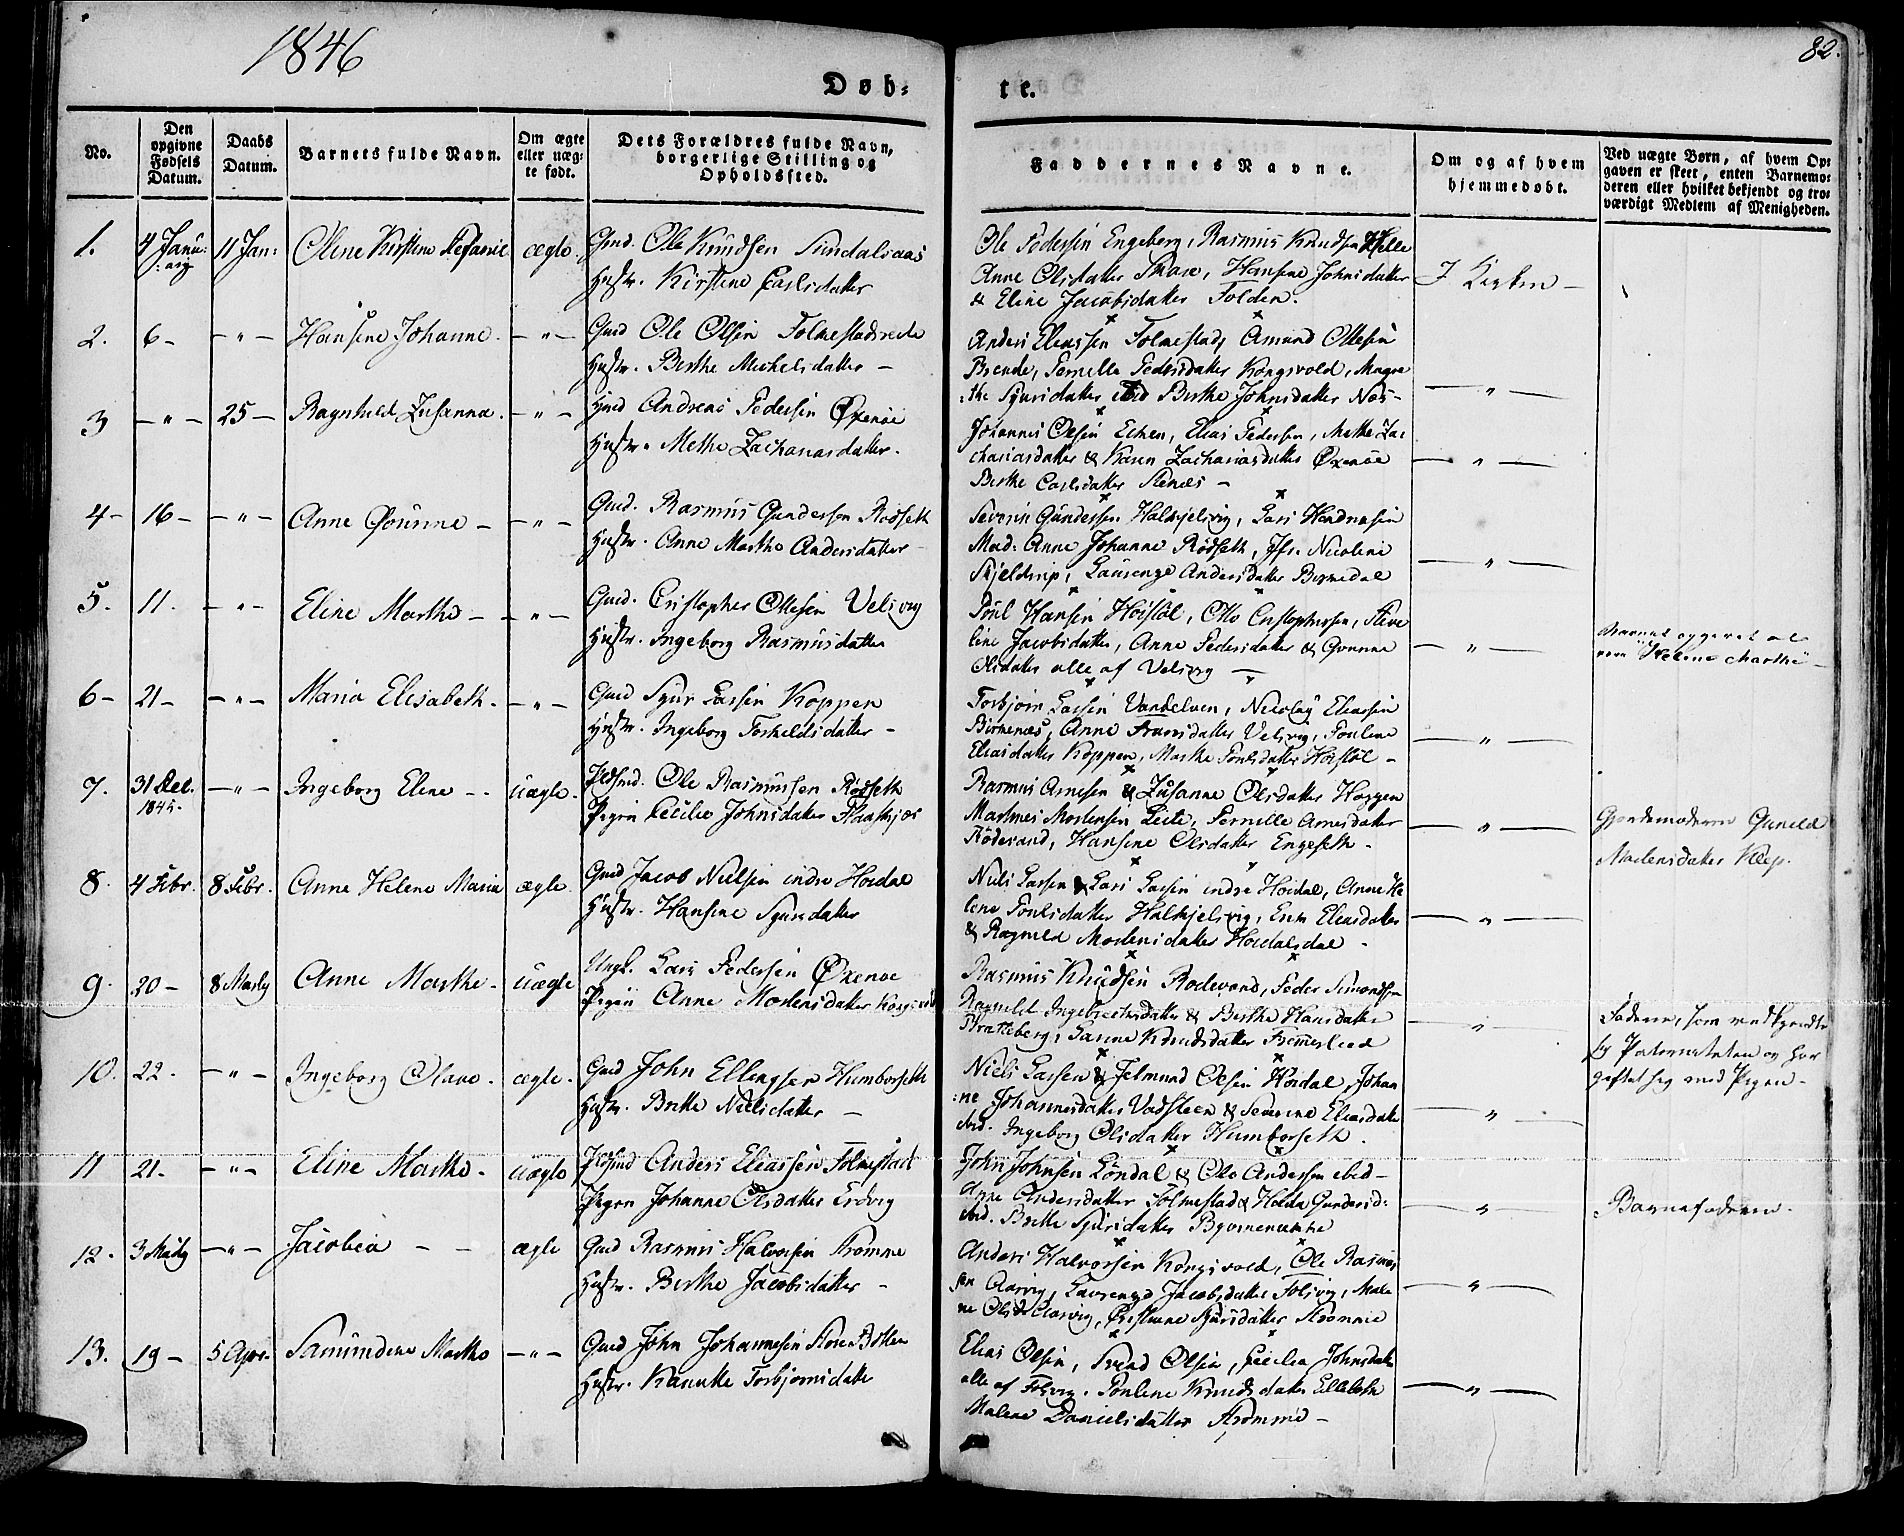 1846
82.
Døb-
te.
No.
Den opgivne Fødsels Datum.
Daabs Datum.
Barnets fulde Navn.
Om ægte eller uæg-te født.
Dets Forældres fulde Navn, borgerlige Stilling og Opholdssted.
Faddernes Navne.
Om og af hvem hjemmedøbt.
Ved uægte Børn, af hvem Op-gaven er skeet, enten Barnemo-deren eller hvilket bekjendt og tro-værdigt Medlem af Menigheden.
1. 4 Janu:ary 11 Jan: Oline Kirstine Stefanie ægte. Gmd. Ole Knudsen Sundalsaas
Hustr. Kirstine Carlsdatter
Ole Pedersen Engeberg, Rasmus Knudsen Helle
Anne Olsdatter Skare, Hansine Johnsdatter
& Eline Jacobsdatter Folden.
I Kirken -
2. 6 - - " - Hansine Johanne. - " - Gmd Ole Olsen Folmestadreite
Hustr. Birthe Michelsdatter -
Anders Eliassen Folmestad, Amund Ottesen
Brende, Pernille Pedersdatter Kongsvold, Magre
:the Sjursdatter ibid Birthe Johnsdatter Næs -
- " -
3 - " - 25 - Ragnhild Zusanna. - " - Gmd Andreas Pedersen Øxenøe
Hustr. Methe Zachariasdatter.
Johannes Olsen Echen, Elias Pedersen, Methe Za-
chariasdatter & Karen Zachariasdatter Øxenøe
Birthe Carlsdatter Stenæs -
- " -
4 - 16 - - " - Anne Gurine - - " - Gmd. Rasmus Gundersen Rødseth
Hustr. Anne Marthe Andersdatter -
Severin Gundersen Halkjelsvig, Lars Hendriksen
Mad: Anne Johanne Rødseth, Jfr. Nicoline
Skjeldrup, Laurenze Andersdatter Birkedal
- " -
5. 11. - " - Eline Marthe - - " - Gmd. Cristopher Ottesen Velsvig
Hustr. Ingeborg Rasmusdatter
Poul Hansen Høistøl, Otto Cristophersen,
line Jacobsdatter, Anne Pedersdatter & Gurine
Olsdatter alle af Velsvig -
- " -
Barnet opgivet at
være Helene Marthe -
6 - 21 - - " - Maria Elisabeth. - " - Gmd Sjur Larsen Koppen
Hustr. Ingeborg Torkeldsdatter -
Torbjørn Larsen Vardelven, Nicolay Eliassen
Birkenæs, Anne Hansdatter Velsvig, Pouline
Eliasdatter Koppen, Marthe Poulsdatter Høistøl -
- " -
7. 31 Dec. 1845. - " - Ingeborg Eline - - uægte. Ole Rasmussen Rødseth
Pigen Cecilie Johnsdatter Flaaskjær
Rasmus Arnesen & Zusanne Olsdatter Haggen
Martines Mortensen Leite, Pernille Arnesdatter
Rødevand, Hansine Olsdatter Engeseth -
- " -
Gjordemoderen Gunild
Mortensdatter Kleep.
8. 4 Febr. 8 Febr. Anne Helene Maria ægte. Gmd Jacob Nielsen indre Høidal
Hustr. Hansine Sjursdatter
Niels Larsen & Lars Larsen indre Høidal, Anne He
lene Poulsdatter Halkjelsvig, Eliasdatter
& Ragnild Mortensdatter Høidalsdal -
- " -
9. 20 - 8 Marty Anne Marthe - uægte Ungk. Lars Pedersen Øxenøe
Pigen Anne Mortensdatter Kongsvold
Rasmus Knudsen Rødevand, Peder Simondsen
Ragnild Ingebrectsdatter & Birthe Hansdatter
Bratteberg, Larine Knudsdatter
- " -
Faderen, som vedkjendte
sig Paterniteten og har
giftet sig med Pigen -
10. 22. - " - Ingeborg Olave. ægte. Gmd John Ellingsen Humborseth
Hustr. Brithe Nielsdatter -
Niels Larsen & Jetmund Olsen Høidal, Johan
:ne Johannesdatter Vadsteen & Severine Eliasdatter
ibid. Ingeborg Olsdatter Humborseth.
- " -
11 21. - " - Eline Marthe. uægte Anders Eliassen Folmestad
Pigen Johanne Olsdatter Ervig
John Johnsen Løndal & Ole Andersen ibid -
Anne Andersdatter Folmestad & Holda Gundersd:
ibid. Brithe Sjursdatter
- " -
Barnefaderen.
12. 3 Marty - " - Jacobia - - ægte Gmd Rasmus Halvorsen Strømme
Hustr. Birthe Jacobsdatter -
Anders Halvorsen Kongsvold, Ole Rasmus
sen Aarvig, Laurenze Jacobsdatter Folsvig, Male
ne Olsd. Aarvig, Sjursdatter Strømme
- " -
13. 19 - 5 Apr. Samundine Marthe - " - Gmd John Johannesen Store Botten
Hustr. Kanutte Torbjørnsdatter
Elias Olsen, Svend Olsen, Cecilia Johnsdatter
alle af Folsvig. Pouline Knudsdatter
Malene Danielsdatter Strømme -
- " -